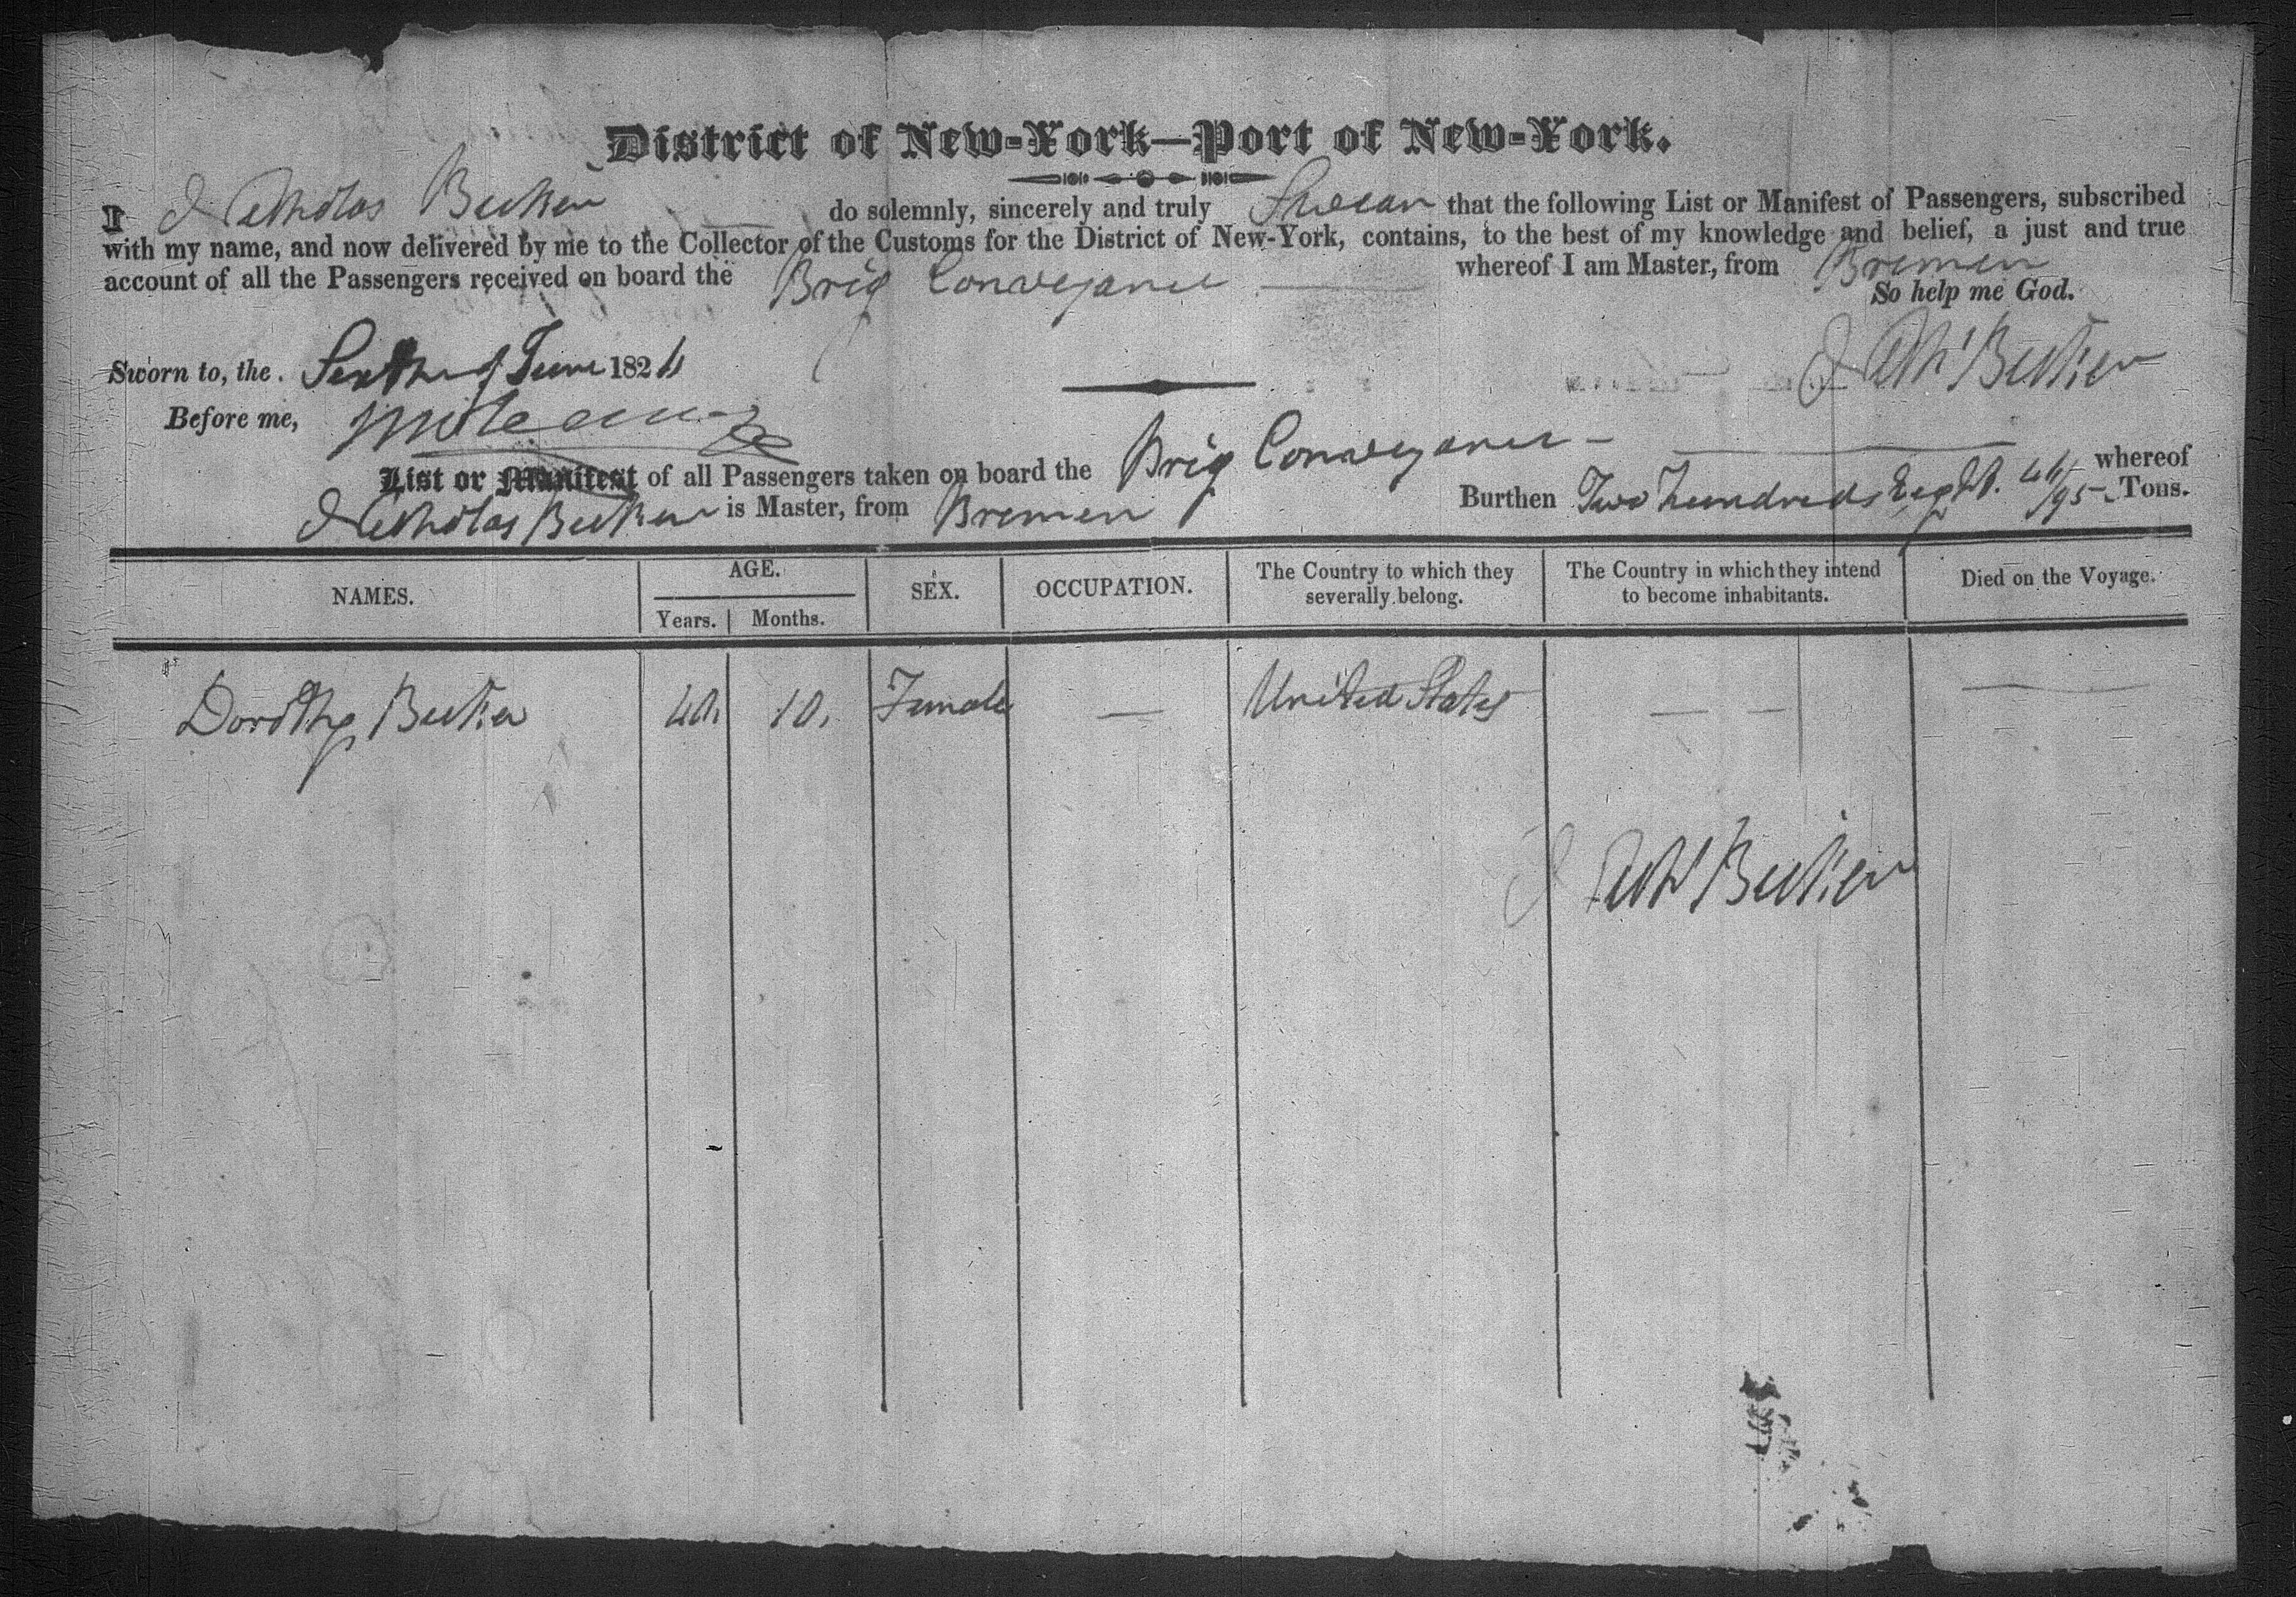 District of New-York—Port of New-York.
I Nicholas Becker do solemnly, sincerely and truly Swear that the following List or Manifest of Passengers, subscribed
with my name, and now delivered by me to the Collector of the Customs for the District of New-York, contains, to the best of my knowledge and belief, a just and true
account of all the Passengers received on board the Brig Conveyance whereof I am Master, from Bremen
So help me God.
Sworn to, the Sixth of June 1824
Before me,
Becker
List or Manifest of all Passengers taken on board the Brig Conveyance whereof
Nicholas Becker is Master, from Bremen Burthen Two hundreds Eight 46/95 Tons.
NAMES. AGE. SEX. OCCUPATION. The Country to which they severally belong. The Country in which they intend to become inhabitants. Died on the Voyage.
Years. Months.
Dorothy Becker 40 10 Female — United States — — —
Becker